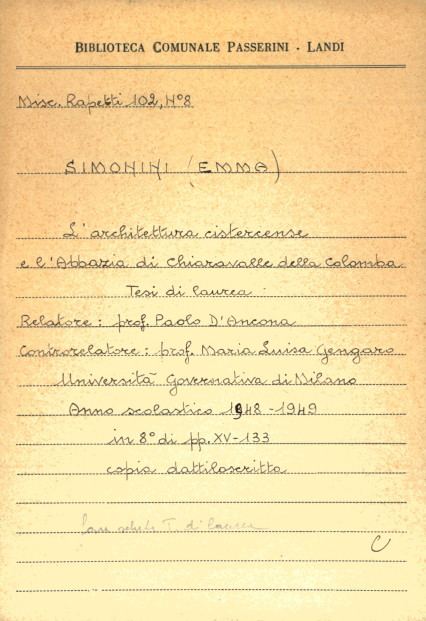 BIBLIOTECA COMUNALE PASSERINI - LANDI
Misc. Rapetti 102, N°8
SIMONINI (EMMA)
L'architettura cistercense
e l'Abbazia di Chiaravalle della Colomba
Tesi di laurea
Relatore : prof. Paolo D'Ancona
Controrelatore : prof. Maria Luisa Gengaro
Università Governativa di Milano
Anno scolastico 1948-1949
in 8° di pp. XV-133
copia dattiloscritta
T. di laurea
C